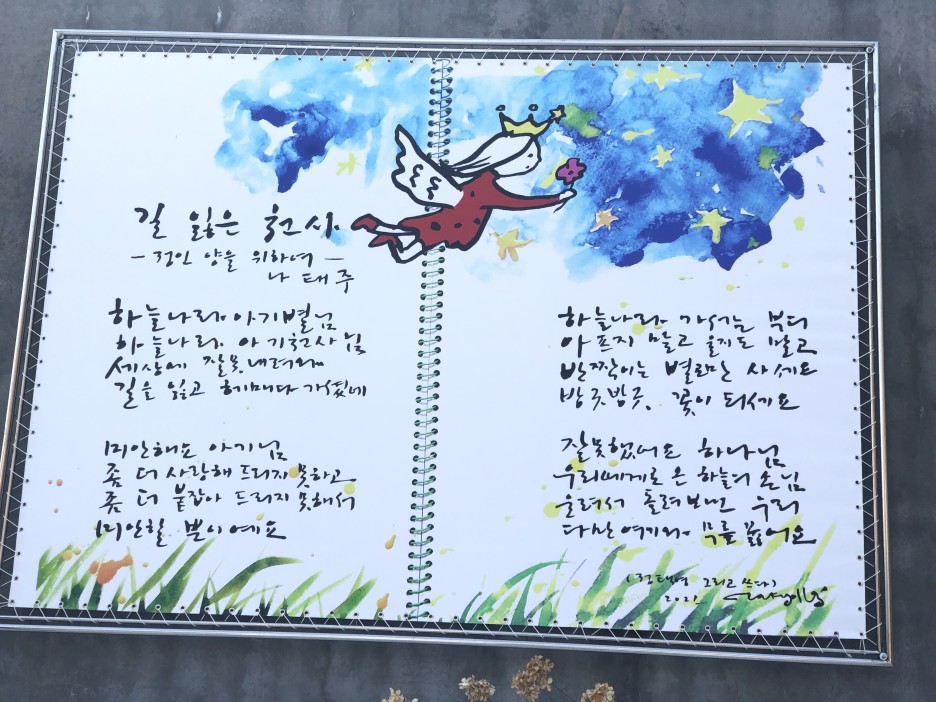 길 잃은 천사
- 정인 양을 위하여 -
나 태 주
하늘나라 아기별님
하늘나라 아기천사님
세상에 잘못 내려와
길을 잃고 헤매다 가셨네
미안해요 아기님
좀 더 사랑해 드리지 못하고
좀 더 붙잡아 드리지 못해서
미안할 뿐이에요
하늘나라 가서는 부디
아프지 말고 울지도 말고
반짝이는 별로만 사세요
방긋방긋 꽃이 되세요
잘못했어요 하나님
우리에게로 온 하늘의 손님
울려서 돌려보낸 우리
다만 여기와 무릎 꿇어요
(정태영 그리고 쓰다)
2021